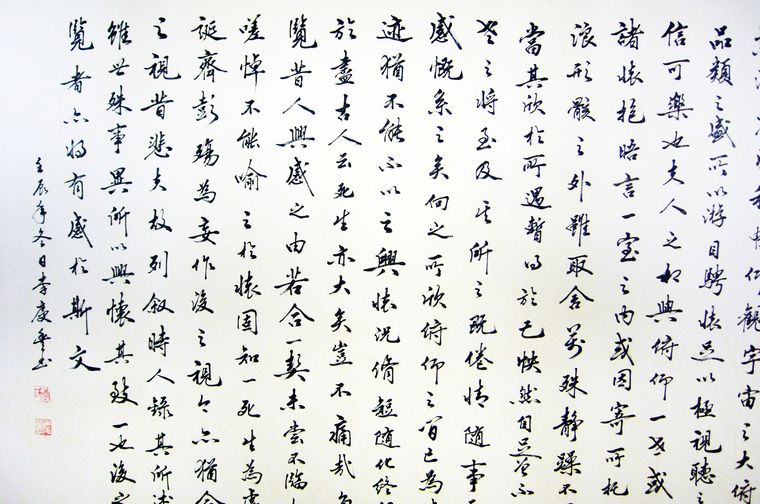 仰觀宇宙之大俯
品類之盛所以游目騁懷足以極視聽之
信可樂也夫人之相與俯仰一世或
諸懷抱晤言一室之內或因寄所托
浪形骸之外雖取舍萬殊靜躁不
當其欣於所遇暫得於己怏然自足曾不
老之將至及其所之既倦情隨事
感慨系之矣向之所欣俯仰之間已為
迹猶不能不以之興懷況脩短隨化終
於盡古人云死生亦大矣豈不痛哉
覽昔人興感之由若合一契未嘗不臨
嗟悼不能喻之於懷固知一死生為
誕齊彭殤為妄作後之視今亦猶今
之視昔悲夫故列敘時人錄其所述
雖世殊事異所以興懷其致一也後之
覽者亦將有感於斯文
壬辰年冬日李慶